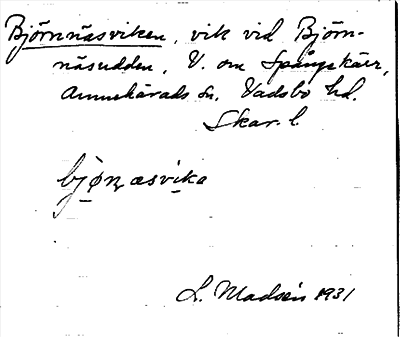 Björnnäsviken, vik vid Björn-
näsudden, V. om Spångskärr,
Amnehärads sn. Vadsbo hd.
Skar. l.
bjøɳæsvika
L. Madsén 1931